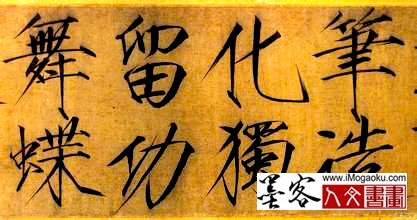 筆造
化獨
留功
舞蝶
www.iMogaoku.com
墨客人文書畫